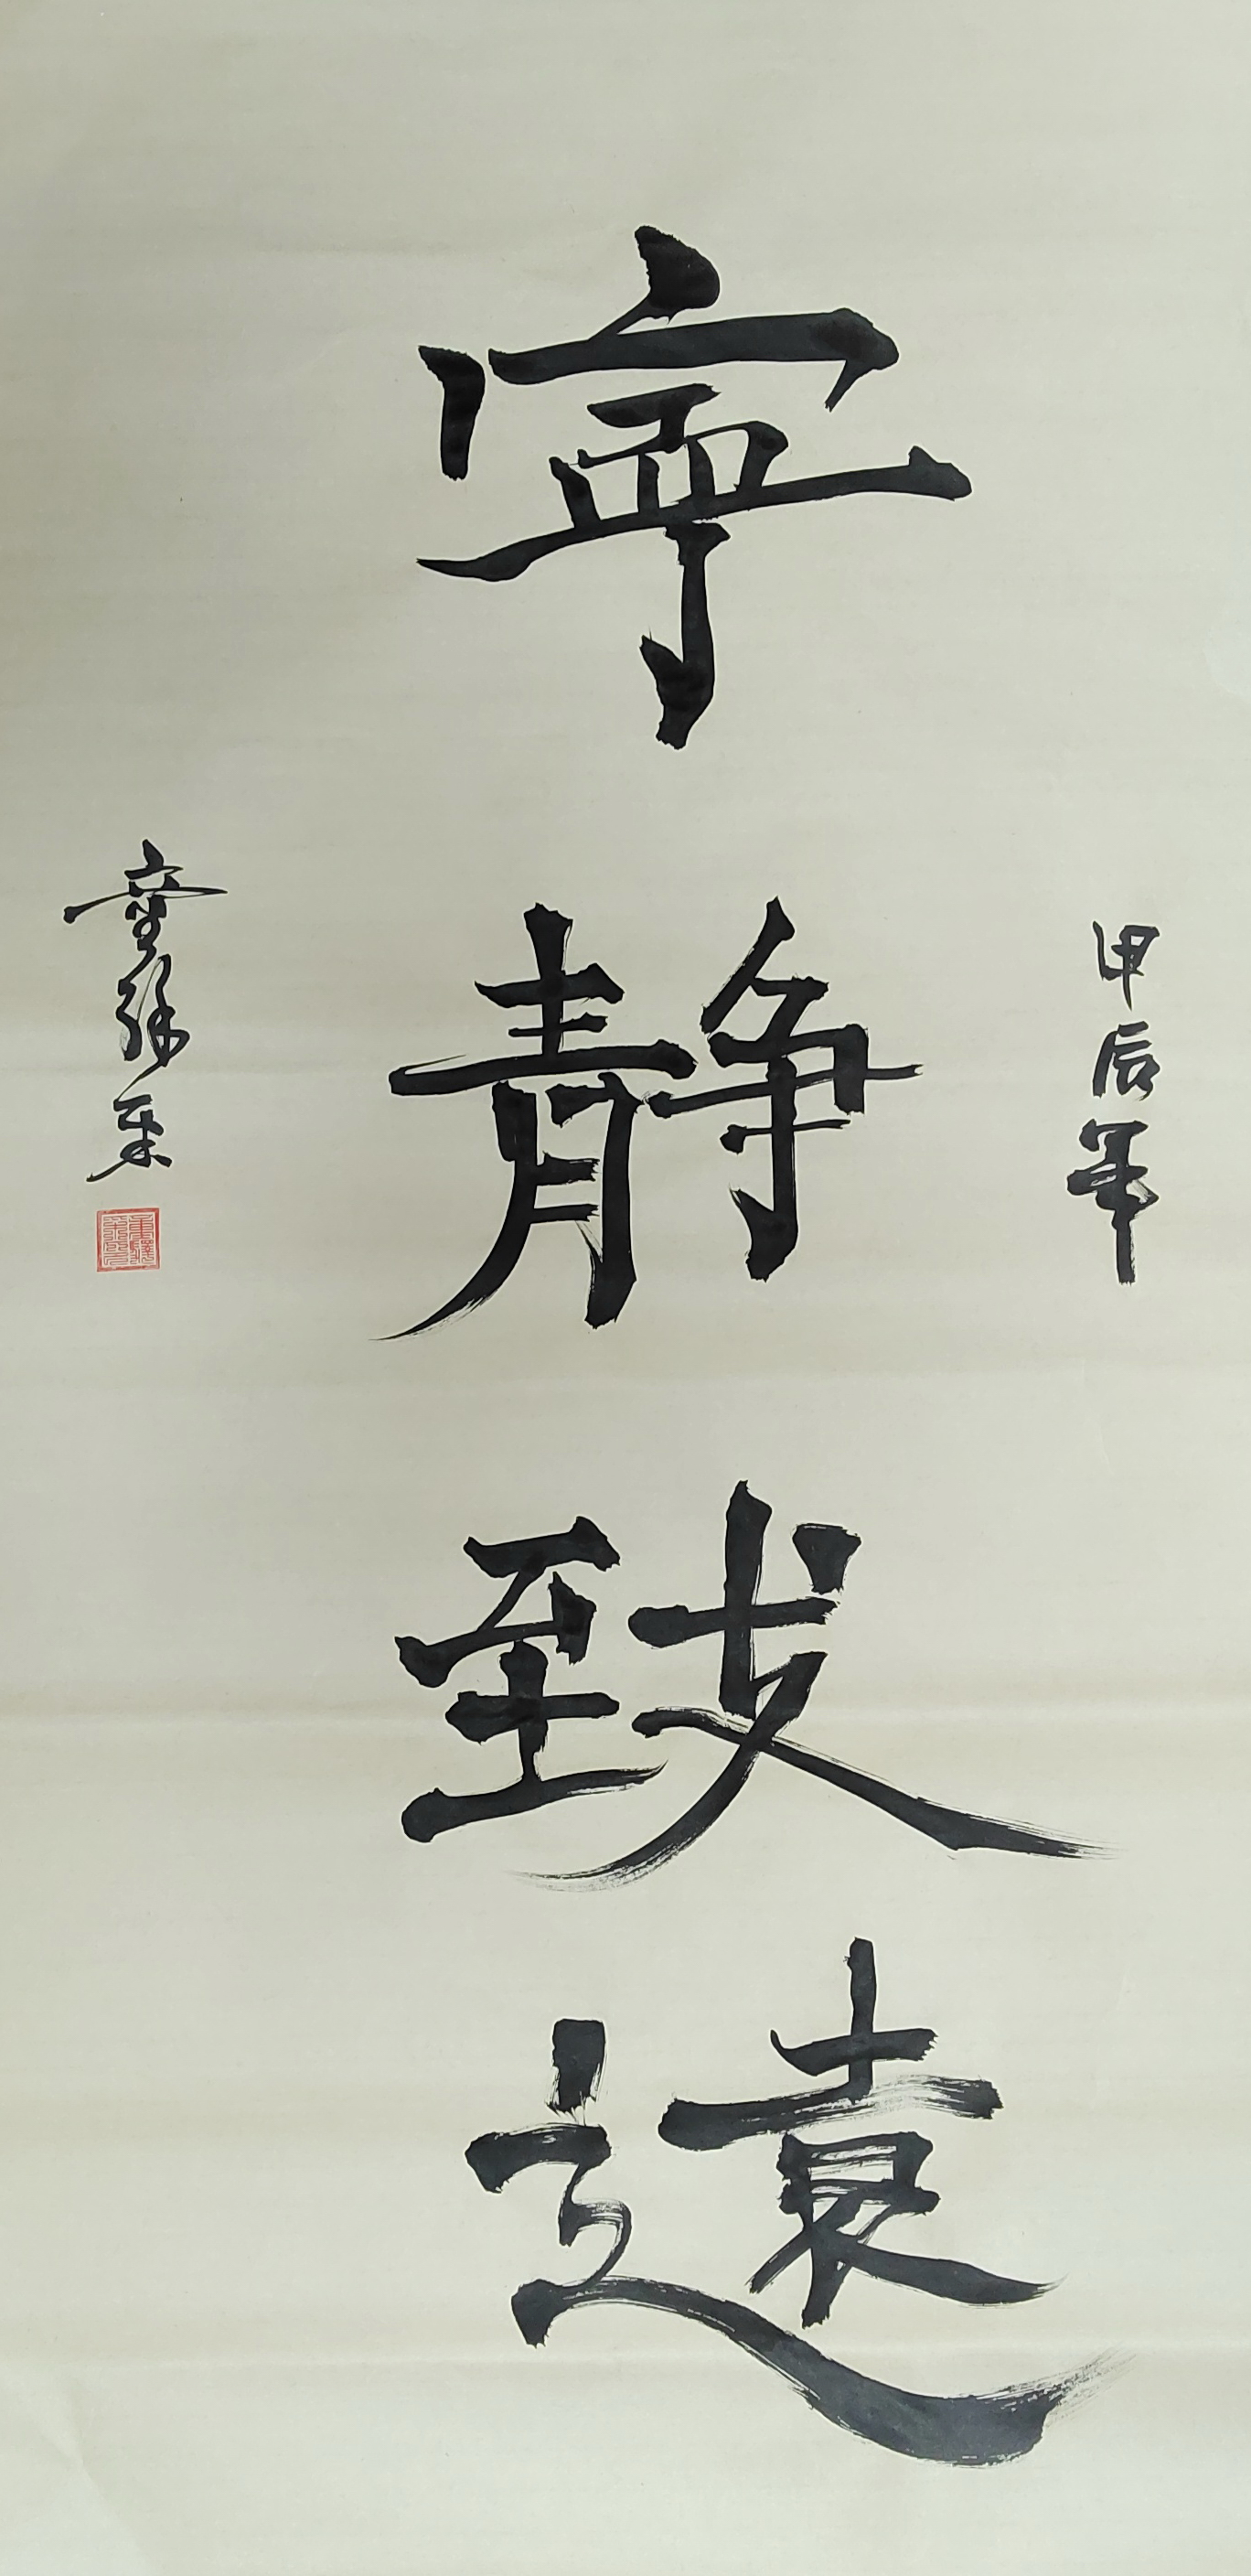 甲辰年
寧静致遠